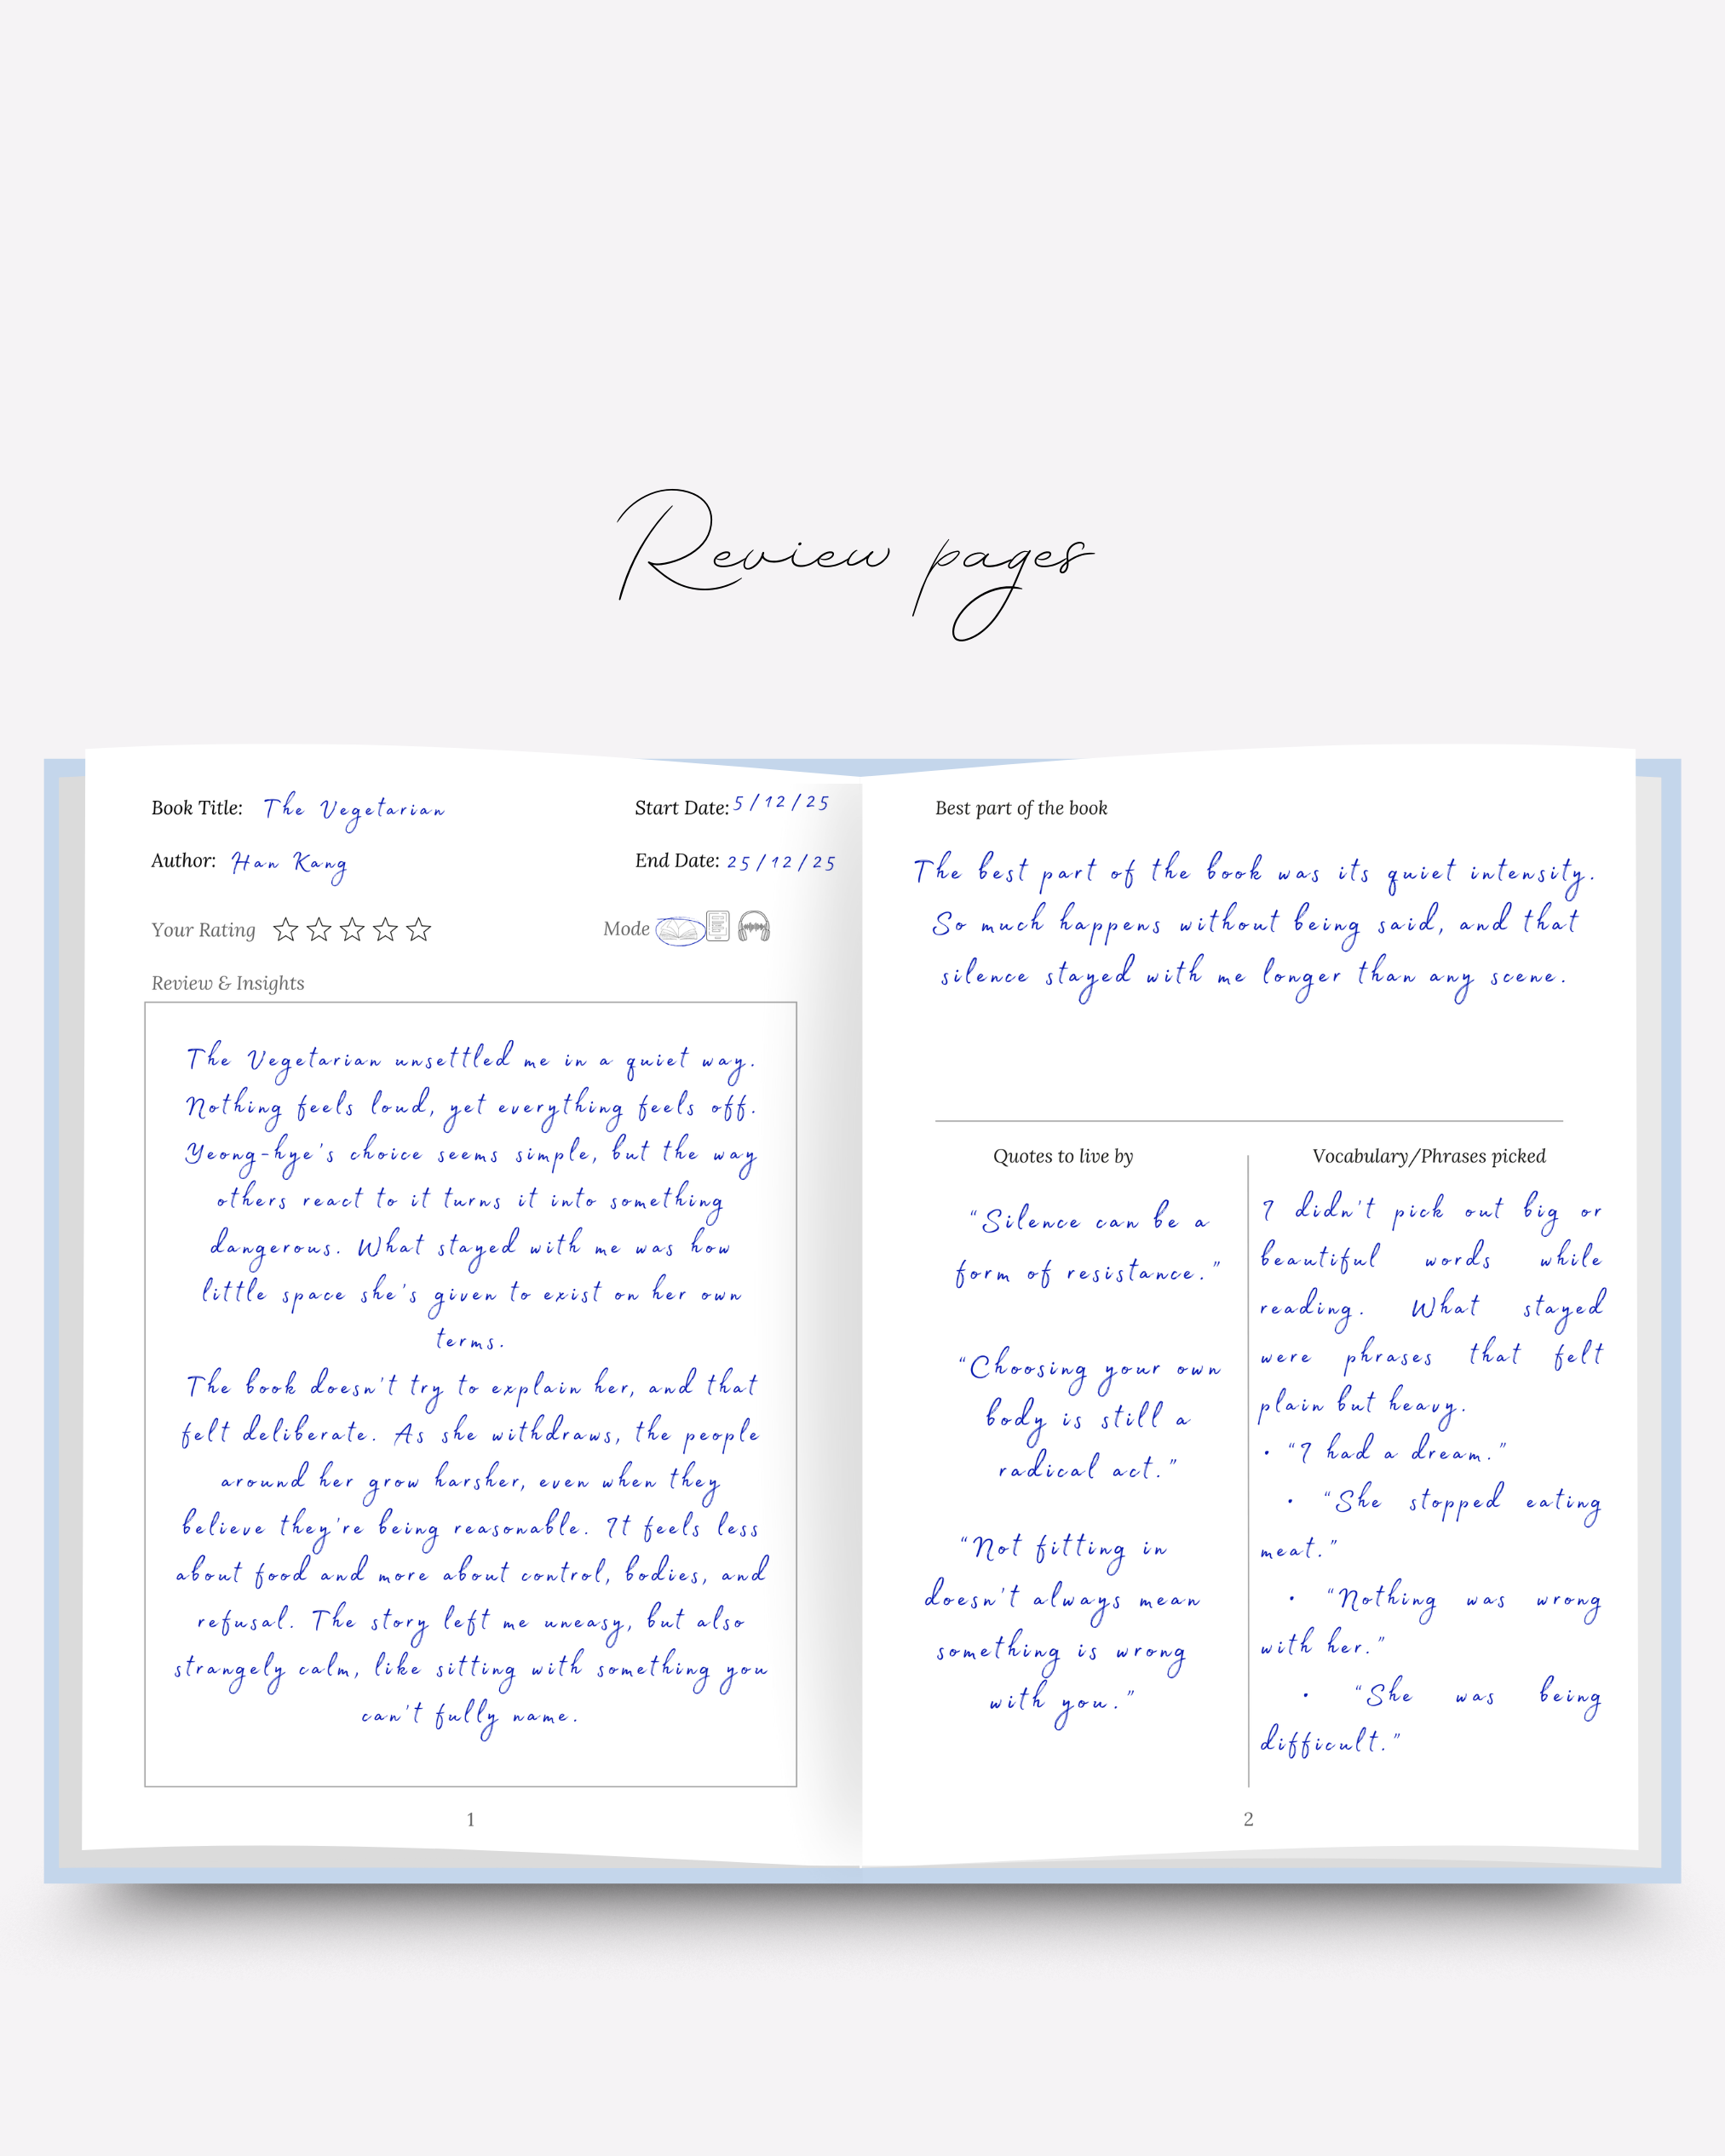 Review pages
Book Title: The Vegetarian
Start Date: 5/12/25
Author: Han Kang
End Date: 25/12/25
Your Rating
Mode
Review & Insights
The Vegetarian unsettled me in a quiet way.
Nothing feels loud, yet everything feels off.
Yeong-hye's choice seems simple, but the way
others react to it turns it into something
dangerous. What stayed with me was how
little space she's given to exist on her own
terms.
The book doesn't try to explain her, and that
felt deliberate. As she withdraws, the people
around her grow harsher, even when they
believe they're being reasonable. It feels less
about food and more about control, bodies, and
refusal. The story left me uneasy, but also
strangely calm, like sitting with something you
can't fully name.
1
Best part of the book
The best part of the book was its quiet intensity.
So much happens without being said, and that
silence stayed with me longer than any scene.
Quotes to live by
"Silence can be a
form of resistance."
"Choosing your own
body is still a
radical act."
"Not fitting in
doesn't always mean
something is wrong
with you."
Vocabulary/Phrases picked
I didn't pick out big or
beautiful words while
reading. What stayed
were phrases that felt
plain but heavy.
• "I had a dream."
• "She stopped eating
meat."
• "Nothing was wrong
with her."
• "She was being
difficult."
2